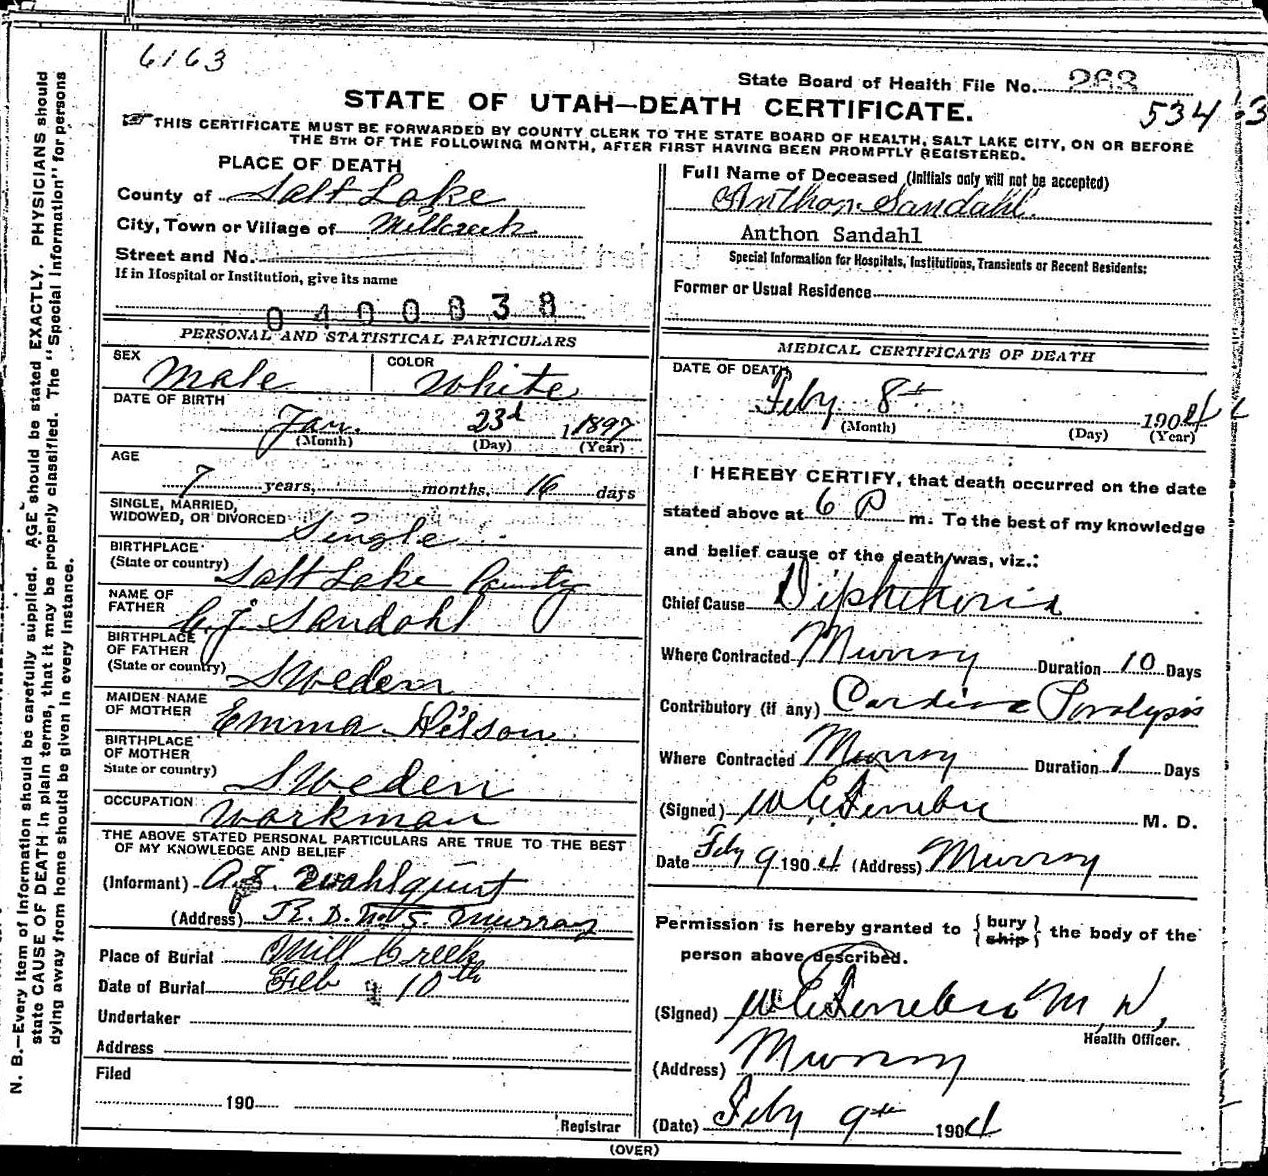 6163
State Board of Health File No. 263
STATE OF UTAH—DEATH CERTIFICATE.
534
THIS CERTIFICATE MUST BE FORWARDED BY COUNTY CLERK TO THE STATE BOARD OF HEALTH, SALT LAKE CITY, ON OR BEFORE
THE 5TH OF THE FOLLOWING MONTH, AFTER FIRST HAVING BEEN PROMPTLY REGISTERED.
PLACE OF DEATH
County of Salt Lake
City, Town or Village of Millcreek
Street and No.
If in Hospital or Institution, give its name
0400838
PERSONAL AND STATISTICAL PARTICULARS
SEX Male COLOR White
DATE OF BIRTH
Jan. 23d 1897
(Month) (Day) (Year)
AGE
7 years, months, 16 days
SINGLE, MARRIED,
WIDOWED, OR DIVORCED Single
BIRTHPLACE
(State or country) Salt Lake County
NAME OF
FATHER C.J. Sandahl
BIRTHPLACE
OF FATHER
(State or country) Sweden
MAIDEN NAME
OF MOTHER Emma
BIRTHPLACE
OF MOTHER
State or country) Sweden
OCCUPATION Workman
THE ABOVE STATED PERSONAL PARTICULARS ARE TRUE TO THE BEST
OF MY KNOWLEDGE AND BELIEF
(Informant)
(Address) R.D. No 5. Murray
Place of Burial Mill Creek
Date of Burial Feb 10th
Undertaker
Address
Filed
190
Registrar
Full Name of Deceased (Initials only will not be accepted)
Anthon Sandahl.
Anthon Sandahl
Special Information for Hospitals, Institutions, Transients or Recent Residents:
Former or Usual Residence
MEDICAL CERTIFICATE OF DEATH
DATE OF DEATH
Feby 8th 1904
(Month) (Day) (Year)
I HEREBY CERTIFY, that death occurred on the date
stated above at 6 P m. To the best of my knowledge
and belief cause of the death was, viz.:
Chief Cause Diphtheria
Where Contracted Murray Duration 10 Days
Contributory (if any) Cardiac Paralysis
Where Contracted Murray Duration 1 Days
(Signed) M. D.
Date Feby 9 1904 (Address) Murray
Permission is hereby granted to { bury
ship } the body of the
person above described.
(Signed) M.D,
Health Officer.
(Address) Murray
(Date) Feby 9th 1904
(OVER)
N. B.—Every item of information should be carefully supplied. AGE should be stated EXACTLY. PHYSICIANS should
state CAUSE OF DEATH in plain terms, that it may be properly classified. The "Special Information" for persons
dying away from home should be given in every instance.